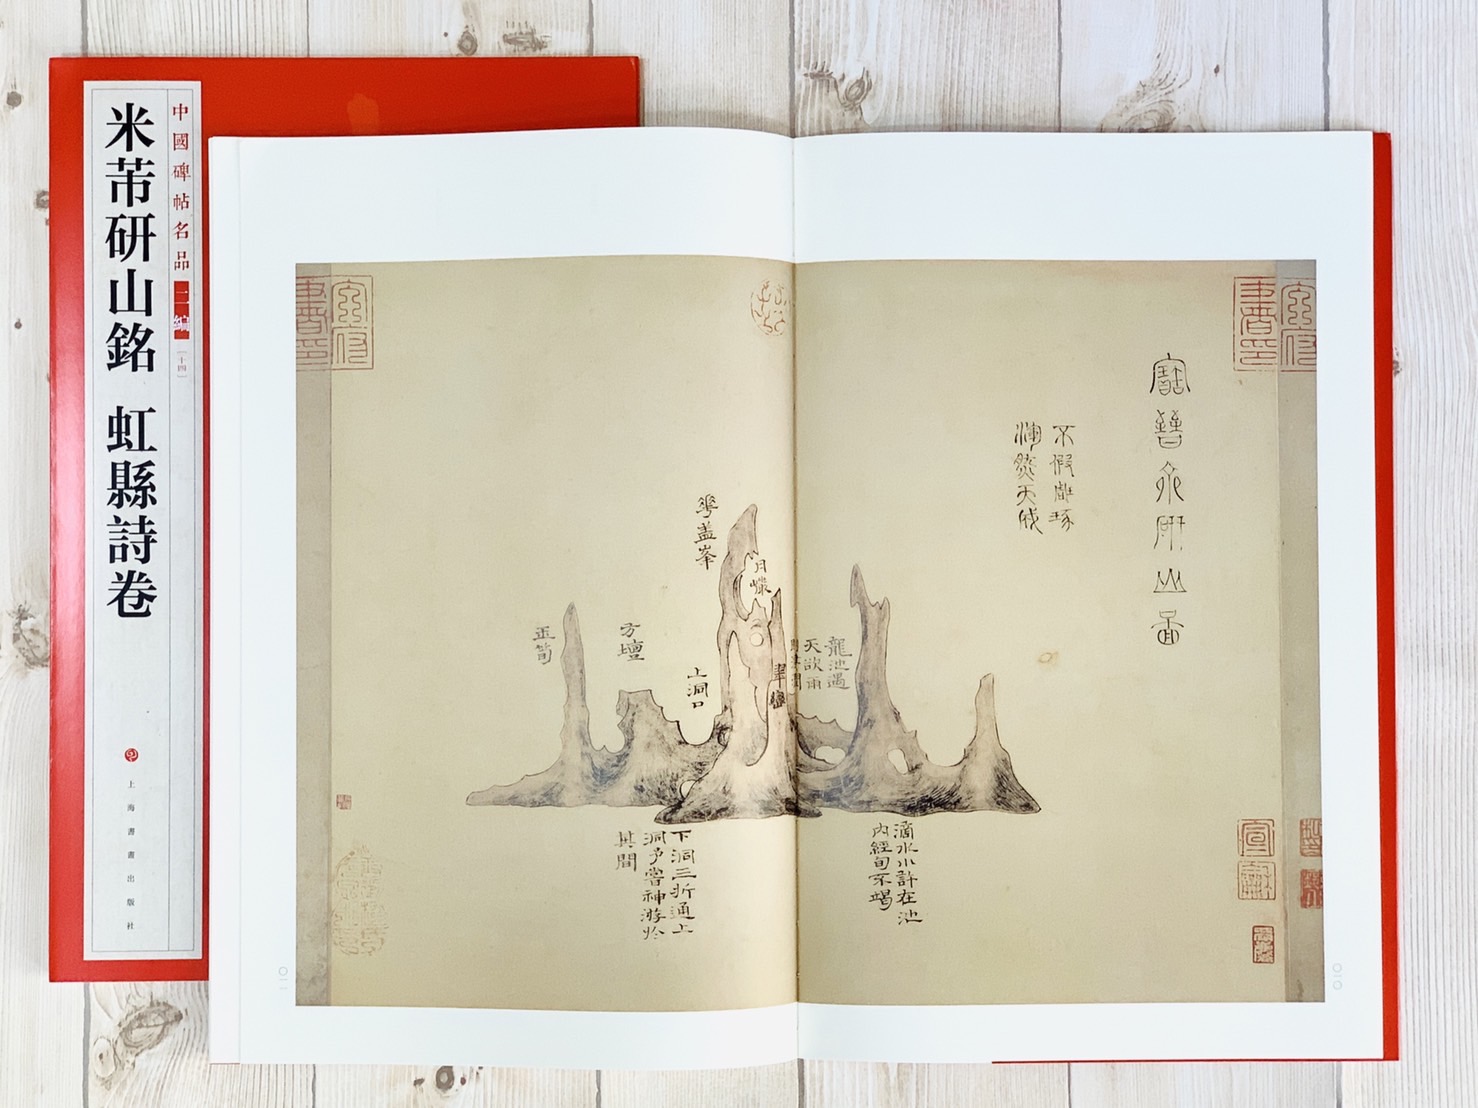 中國碑帖名品
二編
[十四]
米芾研山銘 虹縣詩卷
上海書畫出版社
寶晉齋研山圖
不假雕琢
渾然天成
龍池遇
天欲雨
則津潤
月巖
華盖峯
翠巒
上洞口
方壇
玉筍
滴水小許在池
內經旬不竭
下洞三折通上
洞予嘗神游於
其間
〇一〇
〇一一